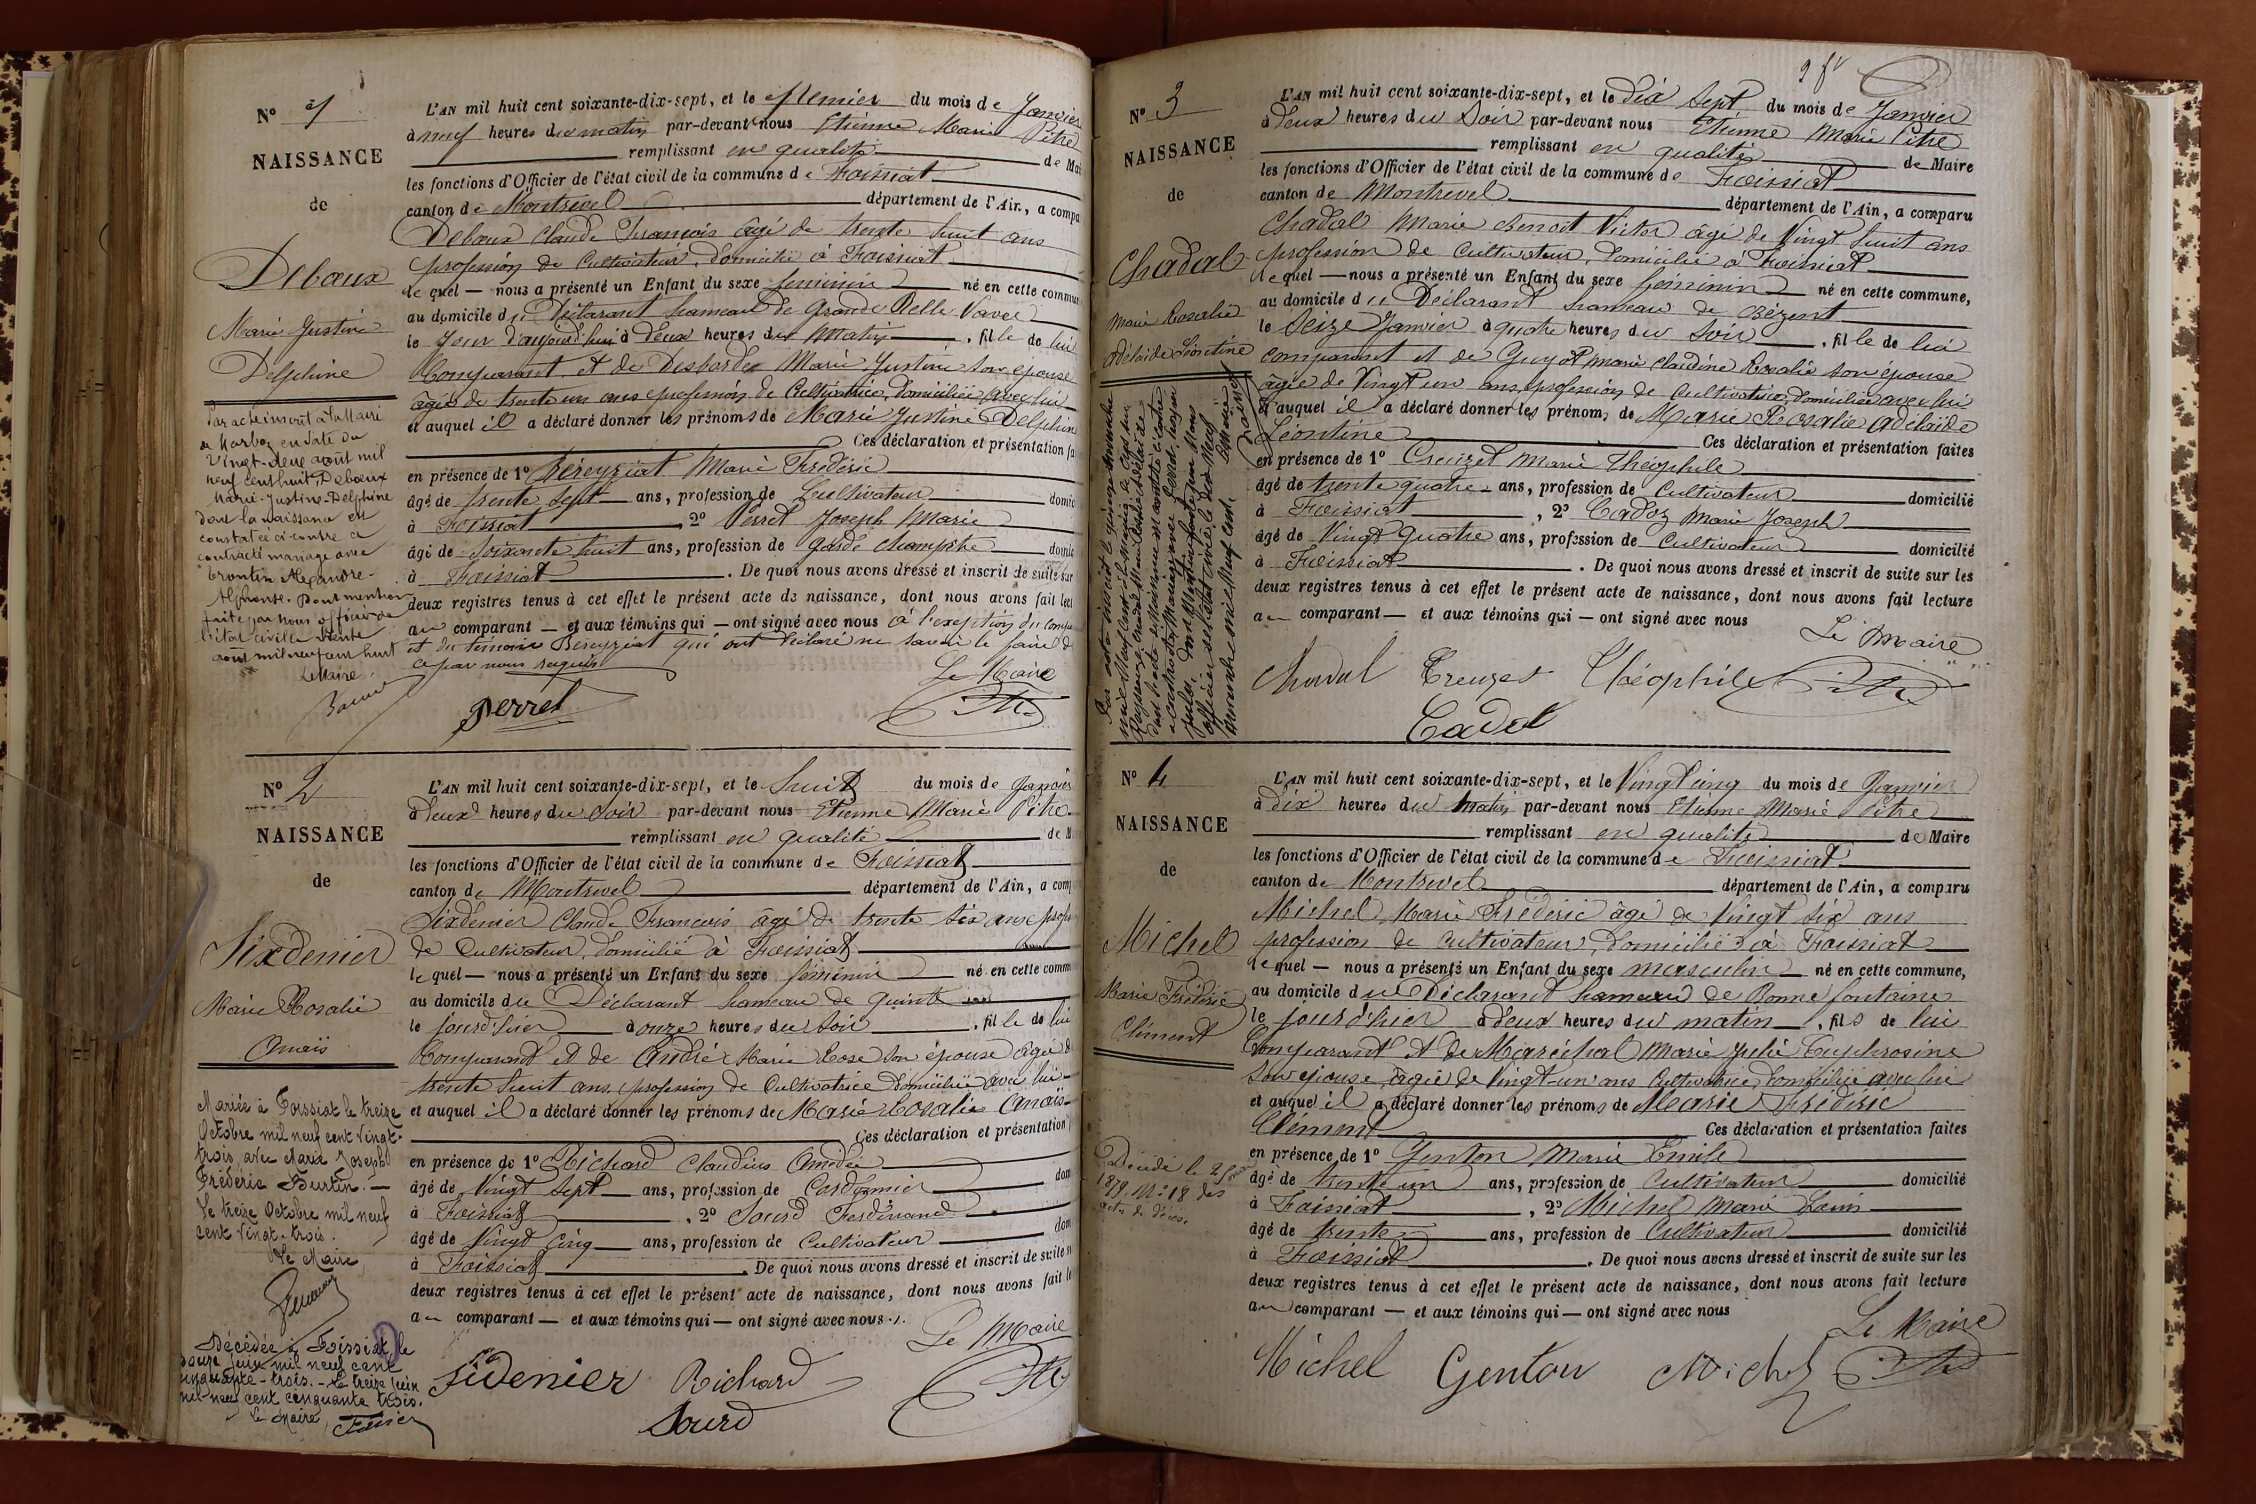 N° 1
NAISSANCE
de
Debœux
Marie Justine
Delphine
Par acte inscrit à la Mairie
de Marboz en date du
vingt-deux août mil
neuf cent huit, Debœux
Marie-Justine-Delphine
dont la naissance est
constatée ci-contre a
contracté mariage avec
Alexandre-
Alphonse. Dont mention
faite par nous officier de
l'état civil le trente
août mil neuf cent huit
Le Maire
L'AN mil huit cent soixante-dix-sept, et le Premier du mois de Janvier
à neuf heures du matin par-devant nous Etienne Marie Pitre
remplissant en qualité de Mai
les fonctions d'Officier de l'état civil de la commune de Foissiat
canton de Montrevel département de l'Ain, a compa
Debœux Claude François âgé de trente huit ans
profession de Cultivateur, domicilié à Foissiat
le quel — nous a présenté un Enfant du sexe féminin né en cette commun
au domicile du Déclarant hameau de Grande Velle Vavre
le Jour d'aujourd'hui à Deux heures du Matin, fille de lui
Comparant et de Desbordes Marie Justine son épouse
âgée de trente un ans profession de Cultivatrice, domiciliée avec lui
et auquel il a déclaré donner les prénoms de Marie Justine Delphine
Ces déclaration et présentation fa
en présence de 1° Béreyziat Marie Frédéric
âgé de trente sept ans, profession de Cultivateur domic
à Foissiat, 2° Perret Joseph Marie
âgé de soixante huit ans, profession de garde champêtre domic
à Foissiat. De quoi nous avons dressé et inscrit de suite sur
deux registres tenus à cet effet le présent acte de naissance, dont nous avons fait lect
au comparant — et aux témoins qui — ont signé avec nous à l'exeption du comp
et du témoin Béreyziat qui ont déclaré ne savoir le faire de
ce par nous requis
Le Maire
Perret
N° 2
NAISSANCE
de
Sixdenier
Marie Rosalie
Anaïs
Mariée à Foissiat le treize
Octobre mil neuf cent vingt-
trois, avec Marie Joseph
Frédéric Burtin. —
Le treize Octobre mil neuf
cent vingt-trois.
Le Maire
Décédée à Foissiat, le
douze juin mil neuf cent
cinquante-trois. - Le treize juin
mil-neuf cent cinquante trois.
Le Maire,
L'AN mil huit cent soixante-dix-sept, et le huit du mois de Janvier
à Deux heures du Soir par-devant nous Etienne Marie Pitre
remplissant en qualité de M
les fonctions d'Officier de l'état civil de la commune de Foissiat
canton de Montrevel département de l'Ain, a comp
Sixdenier Claude François âgé de trente six ans profes
de Cultivateur, domicilié à Foissiat
le quel — nous a présenté un Enfant du sexe féminin né en cette comm
au domicile du Déclarant hameau de
le jour d'hier à onze heures du Soir, fille de lui
Comparant et de André Marie Rose son épouse âgée de
trente huit ans, profession de Cultivatrice domiciliée avec lui
et auquel il a déclaré donner les prénoms de Marie Rosalie Anaïs
Ces déclaration et présentation
en présence de 1° Richard Claudius Amédée
âgé de Vingt Sept ans, profession de Cordonnier dom
à Foissiat, 2° Sourd Ferdinand
âgé de Vingt Cinq ans, profession de Cultivateur dom
à Foissiat. De quoi nous avons dressé et inscrit de suite s
deux registres tenus à cet effet le présent acte de naissance, dont nous avons fait le
au comparant — et aux témoins qui — ont signé avec nous.
Le Maire
Sixdenier Richard
Sourd
N° 3
NAISSANCE
de
Chadal
Marie Rosalie
Adélaïde Léontine
L'AN mil huit cent soixante-dix-sept, et le dix Sept du mois de Janvier
à Deux heures du Soir par-devant nous Etienne Marie Pitre
remplissant en qualité de Maire
les fonctions d'Officier de l'état civil de la commune de Foissiat
canton de Montrevel département de l'Ain, a comparu
Chadal Marie Benoit Victor âgé de Vingt huit ans
profession de Cultivateur, domicilié à Foissiat
le quel — nous a présenté un Enfant du sexe féminin né en cette commune,
au domicile du Déclarant hameau de Bézent
le Seize Janvier à quatre heures du Soir, fille de lui
comparant et de Guyot Marie Claudine Rosalie son épouse
âgée de Vingt un ans, profession de Cultivatrice, domiciliée avec lui
et auquel il a déclaré donner les prénoms de Marie Rosalie Adélaïde
Léontine Ces déclaration et présentation faites
en présence de 1° Creuzet Marie Théophile
âgé de trente quatre ans, profession de Cultivateur domicilié
à Foissiat, 2° Cadoz Marie Joseph
âgé de Vingt Quatre ans, profession de Cultivateur domicilié
à Foissiat. De quoi nous avons dressé et inscrit de suite sur les
deux registres tenus à cet effet le présent acte de naissance, dont nous avons fait lecture
au comparant — et aux témoins qui — ont signé avec nous
Le Maire
Chadal Creuzet Théophile
N° 4
NAISSANCE
de
Michel
Marie Frédéric
Clément
Décédé le 2
1879. N° 18 des
actes de décès.
L'AN mil huit cent soixante-dix-sept, et le Vingt cinq du mois de Janvier
à dix heures du matin par-devant nous Etienne Marie Pitre
remplissant en qualité de Maire
les fonctions d'Officier de l'état civil de la commune de Foissiat
canton de Montrevel département de l'Ain, a comparu
Michel Marie Frédéric âgé de Vingt six ans
profession de Cultivateur, domicilié à Foissiat
le quel — nous a présenté un Enfant du sexe masculin né en cette commune,
au domicile du Déclarant hameau de Bonne fontaine
le jour d'hier à Deux heures du matin, fils de lui
Comparant et de Maréchal Marie Julie Euphrosine
son épouse, âgée de Vingt-un ans Cultivatrice, domiciliée avec lui
et auquel il a déclaré donner les prénoms de Marie Frédéric
Clément Ces déclaration et présentation faites
en présence de 1° Genton Marie Emile
âgé de trente un ans, profession de Cultivateur domicilié
à Foissiat, 2° Michel Marie Louis
âgé de trente ans, profession de Cultivateur domicilié
à Foissiat. De quoi nous avons dressé et inscrit de suite sur les
deux registres tenus à cet effet le présent acte de naissance, dont nous avons fait lecture
au comparant — et aux témoins qui — ont signé avec nous
Le Maire
Michel Genton Michel